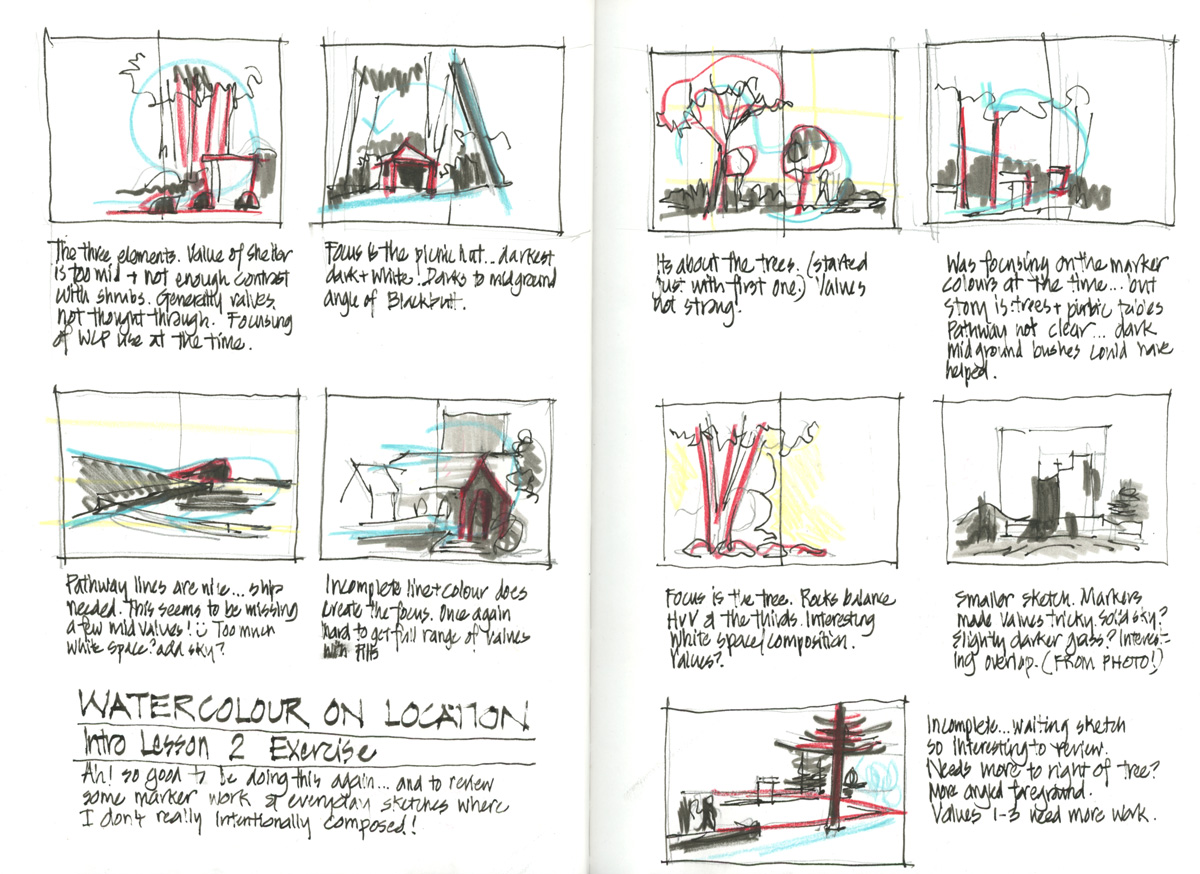 The three elements. Value of shelter
is too mid + not enough contrast
with shrubs. Generally values
not thought through. Focusing
of WCP use at the time.
Focus is the picnic hut... darkest
dark + white! Darks to midground
angle of Blackbutt.
Its about the trees. (started
just with first one.) Values
not strong!
Was focusing on the marker
colours at the time... but
story is: trees + picnic tables
Pathway not clear... dark
midground bushes could have
helped.
Pathway lines are nice... ship
needed. This seems to be missing
a few mid values! Too much
white space? add sky?
Incomplete line + colour does
create the focus. Once again
hard to get full range of values
with
Focus is the tree. Rocks balance
H+V of the thirds. Interesting
white space/composition.
Values?
Smaller sketch. Markers
made values tricky. Solid sky?
Slightly darker grass? Interest-
ing overlap. (FROM PHOTO!)
WATERCOLOUR ON LOCATION
Intro Lesson 2 Exercise
Ah! so good to be doing this again... and to review
some marker work of everyday sketches where
I don't really intentionally composed!
Incomplete... waiting sketch
so interesting to review.
Needs more to right of tree?
More angled foreground.
Values 1-3 need more work.